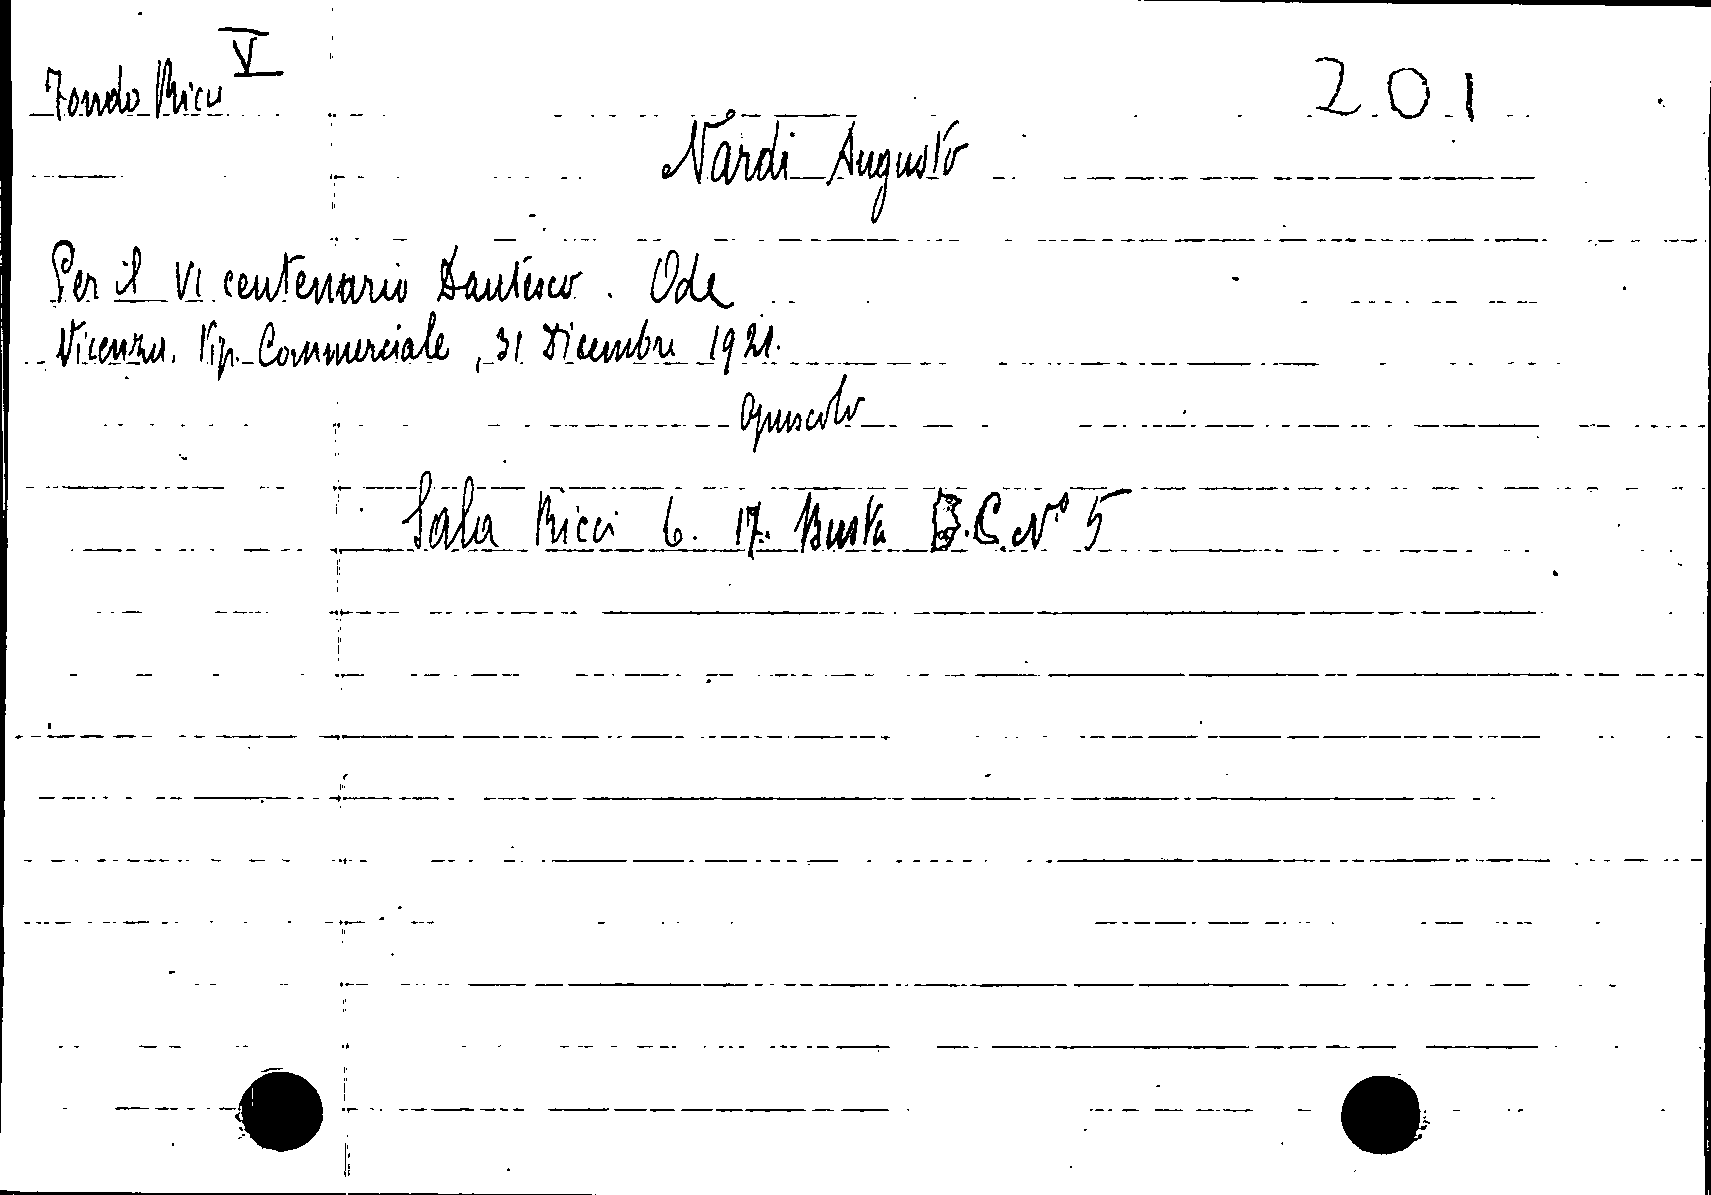 Fondo Ricci V
201
Nardi Augusto
Per il VI centenario Dantesco. Ode
Vicenza. Tip. Commerciale, 31 Dicembre 1921.
opuscolo
Sala Ricci 6. 17. Busta B.C. N° 5